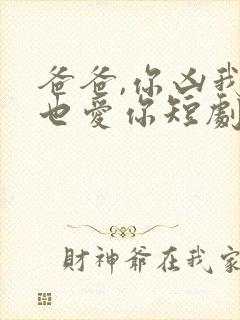 爸爸,你凶我
也爱你短劇
財神爺在我家